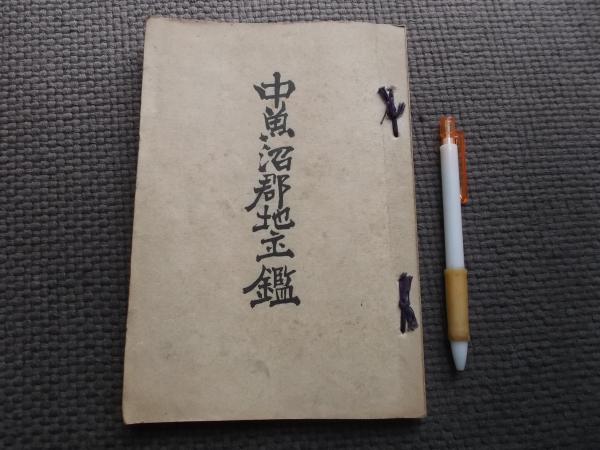 中魚沼郡地主鑑